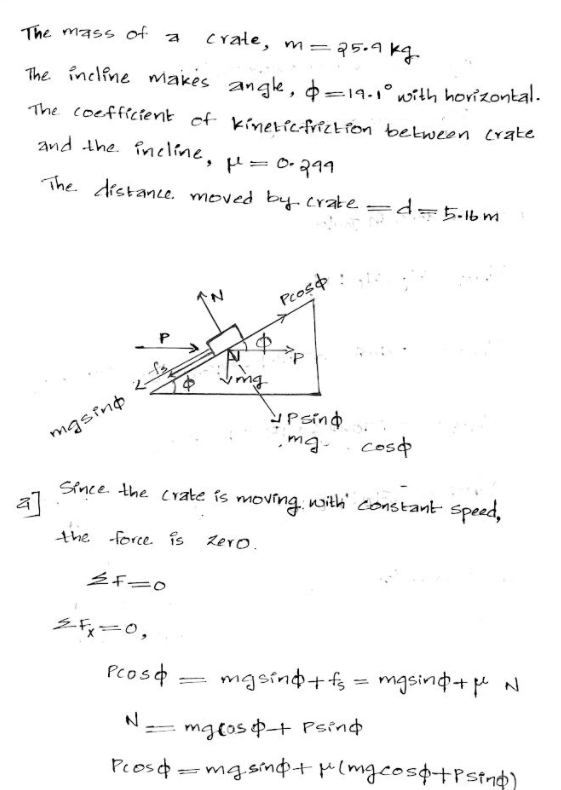 The mass of a crate, m = 25.9 kg
The incline makes angle, ϕ = 19.1° with horizontal.
The coefficient of kinetic friction between crate
and the incline, μ = 0.299
The distance moved by crate = d = 5.16 m
N
Pcosϕ
P
ϕ
P
fs
ϕ
mg
mgsinϕ
Psinϕ
mg cosϕ
a] Since the crate is moving with constant speed,
the force is zero.
ΣF = 0
ΣFx = 0,
Pcosϕ = mgsinϕ + fs = mgsinϕ + μ N
N = mgcosϕ + Psinϕ
Pcosϕ = mg sinϕ + μ(mgcosϕ + Psinϕ)